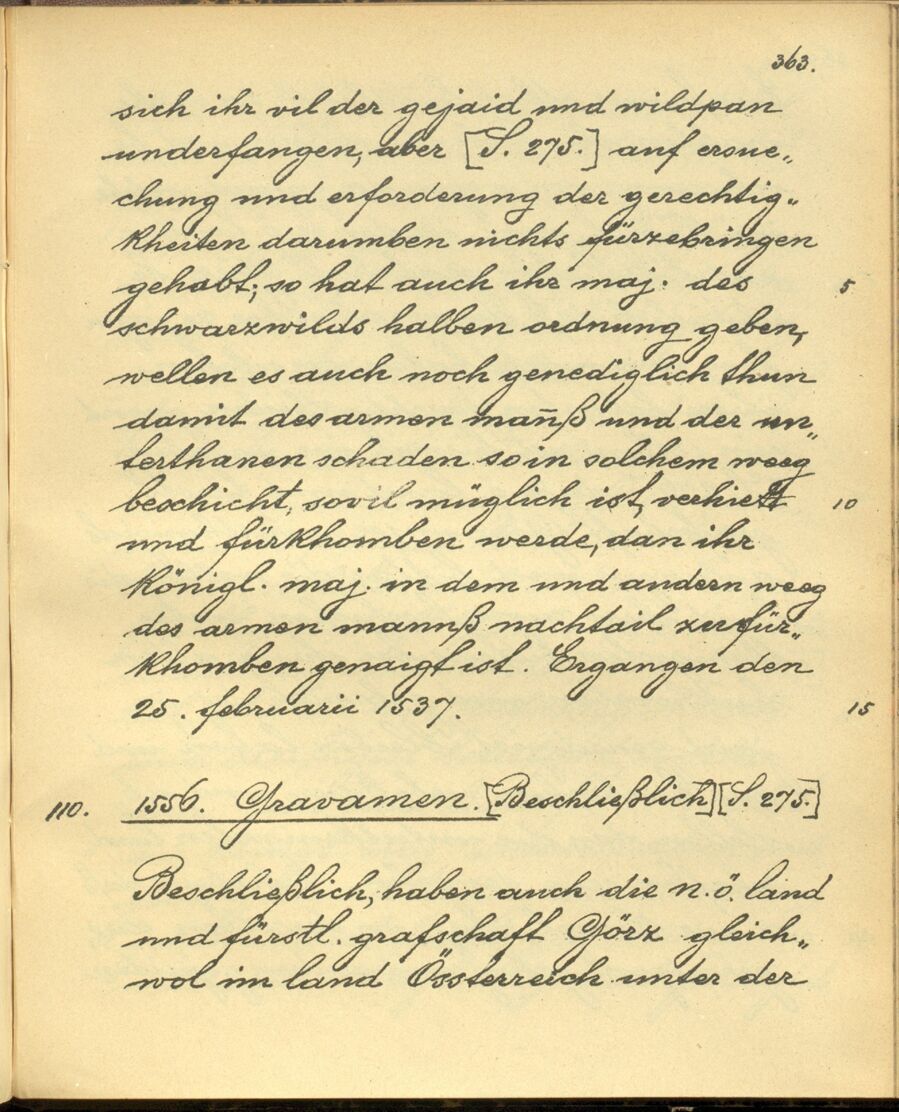 363.
sich ihr vil der gejaid und wildpan
underfangen, aber [S. 275.] auf ersue„
chung und erforderung der gerechtig„
kheiten darumben nichts fürzebringen
gehabt; so hat auch ihr maj. des 5
schwarzwilds halben ordnung geben,
wellen es auch noch genediglich thun
damit des armen man̄ß und der un„
terthanen schaden so in solchem weeg
beschicht, sovil müglich ist, verhiett 10
und fürkhomben werde, dan ihr
königl. maj. in dem und andern weeg
des armen mannß nachtail zu für„
khomben genaigt ist. Ergangen den
25. februarii 1537. 15
110. 1556. Gravamen. [Beschließlich] [S. 275.]
Beschließlich, haben auch die n.ö. land
und fürstl. grafschaft Görz gleich„
wol im land Össterreich unter der